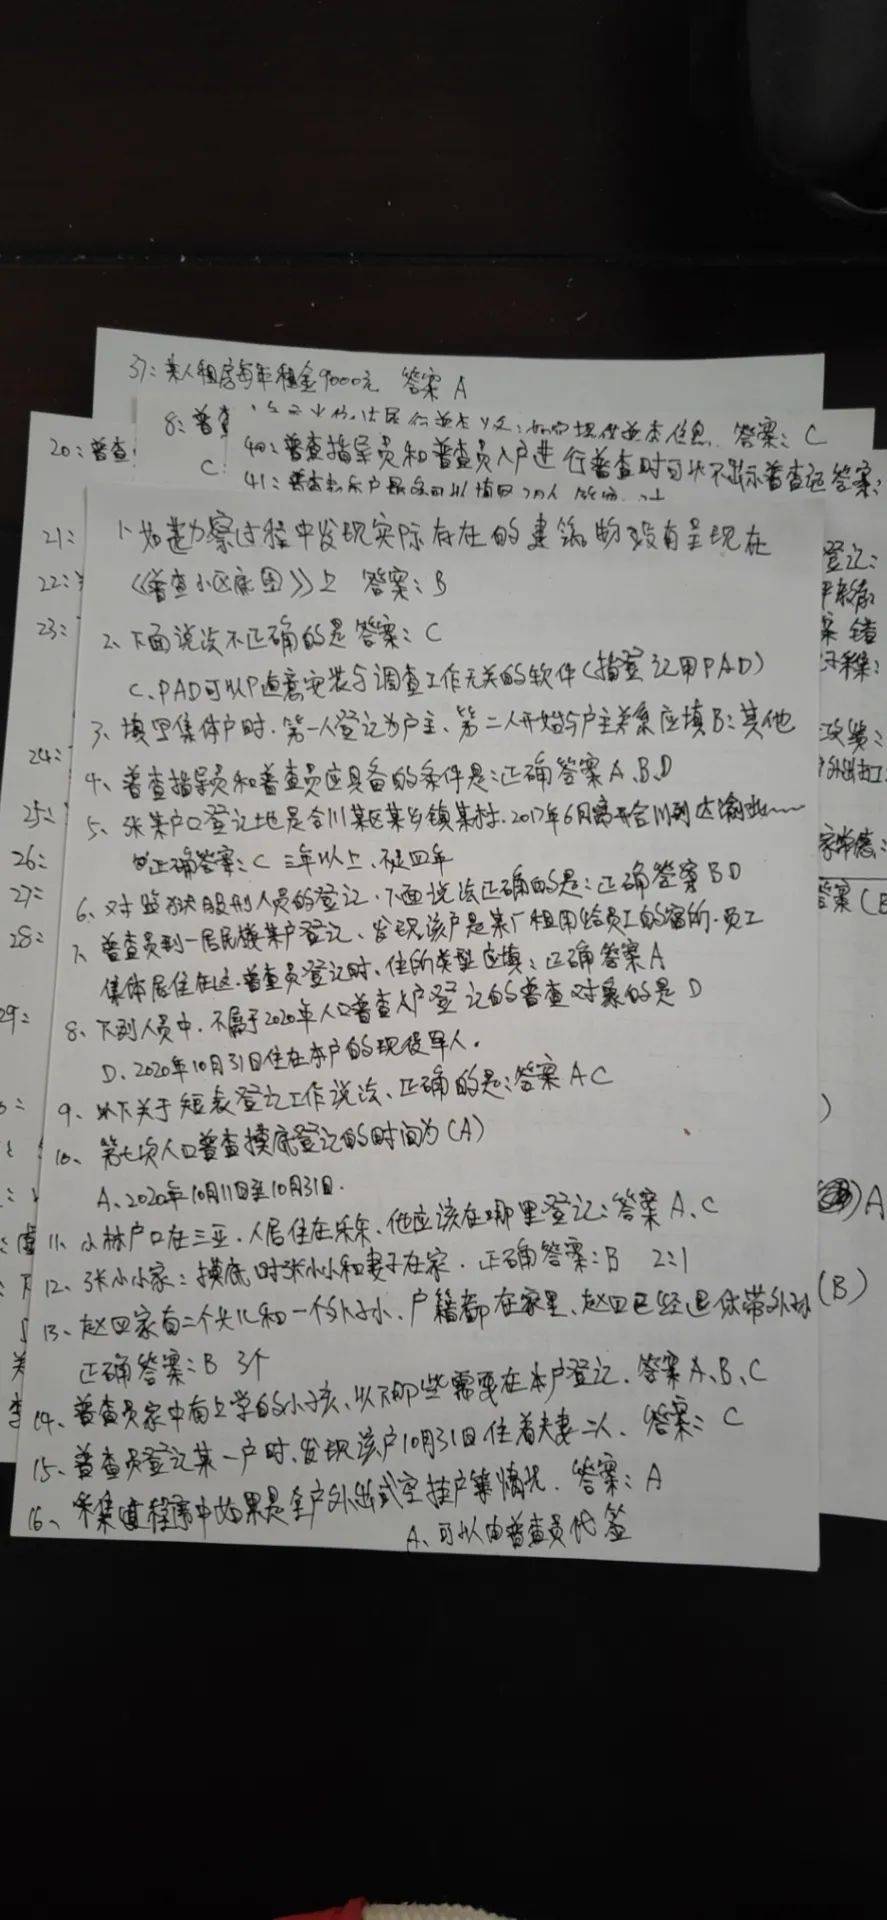 37：某人租房每年租金9000元 答案 A
8：普查
答案：C
20：普查
C
40：普查指导员和普查员入户进行普查时可以不出示普查证 答案：
41：普查
21：
22：
23：
24：
25：
26
27：
28：
29：
登记：
答案(B
A
(B)
1、如遇勘察过程中发现实际存在的建筑物没有呈现在
《普查小区底图》上 答案：B
2、下面说法不正确的是 答案：C
C、PAD可以随意安装与调查工作无关的软件(指登记用PAD)
3、填写集体户时，第一人登记为户主、第二人开始与户主关系应填B：其他
4、普查指导员和普查员应具备的条件是：正确答案A、B、D
5、张某户口登记地是合川某区某乡镇某村，2017年6月离开合川到达渝北……
正确答案：C 三年以上，不足四年
6、对监狱服刑人员的登记，下面说法正确的是：正确答案BD
7、普查员到一居民楼某户登记、发现该户是某厂租用给员工的宿所，员工
集体居住在这，普查员登记时，住所类型应填：正确答案A
8、下列人员中，不属于2020年人口普查入户登记的普查对象的是 D
D、2020年10月31日住在本户的现役军人。
9、以下关于短表登记工作说法、正确的是：答案AC
10、第七次人口普查摸底登记的时间为(A)
A、2020年10月11日至10月31日.
11、小林户口在三亚，人居住在乐东，他应该在哪里登记：答案A、C
12、张小小家：摸底时张小小和妻子在家，正确答案：B 2：1
13、赵四家有二个女儿和一个外孙、户籍都在家里、赵四已经退休带外孙
正确答案：B 3个
14、普查员家中有上学的小孩、以下那些需要在本户登记、答案A、B、C
15、普查员登记某一户时、发现该户10月31日住着夫妻二人、答案：C
16、采集过程中如果是全户外出或空挂户籍情况、答案：A
A、可以由普查员代签